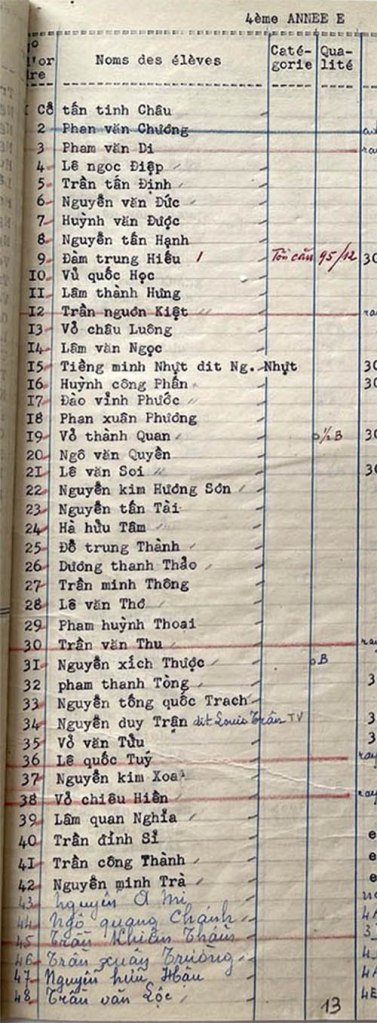 4ème ANNEE E
N° d'or dre Noms des élèves Caté- gorie Qua- lité
I Cổ tấn tinh Châu
2 Phan văn Chương
3 Pham văn Di
4 Lê ngoc Điệp
5 Trần tấn Định
6 Nguyễn văn Đức
7 Huỳnh văn Được
8 Nguyễn tấn Hạnh
9 Đàm trung Hiếu 1 Tôn căn 95/12 30
IO Vũ quốc Học
II Lâm thành Hưng
I2 Trần nguơn Kiệt
I3 Vỏ châu Luông
I4 Lâm văn Ngọc
I5 Tiêng minh Nhựt dit Ng. Nhựt 30
I6 Huỳnh công Phấn 30
I7 Đào vỉnh Phước
I8 Phan xuân Phương
I9 Vỏ thành Quan ½ B 30
20 Ngô văn Quyền
2I Lê văn Soi 30
22 Nguyễn kim Hương Sơn
23 Nguyễn tấn Tài
24 Hà hửu Tâm
25 Đổ trung Thành
26 Dương thanh Thảo
27 Trần minh Thông
28 Lê văn Thơ
29 Pham huỳnh Thoại
30 Trần văn Thu
3I Nguyễn xích Thược B
32 pham thanh Tòng 3
33 Nguyễn tống quốc Trach 3
34 Nguyễn duy Trận dit Louis Trần TV 3
35 Vỏ văn Tửu 3
36 Lê quốc Tuý
37 Nguyễn kim Xoa
38 Vỏ chiêu Hiền
39 Lâm quan Nghỉa
40 Trần đỉnh Sỉ e
4I Trần công Thành e
42 Nguyễn minh Trà e
43 Nguyễn A Mi
44 Ngô quang Chánh
45 Trần Khiên Thân
46 Trần xuân Trường
47 Nguyễn hữu Hậu
48 Trần văn Lộc
13